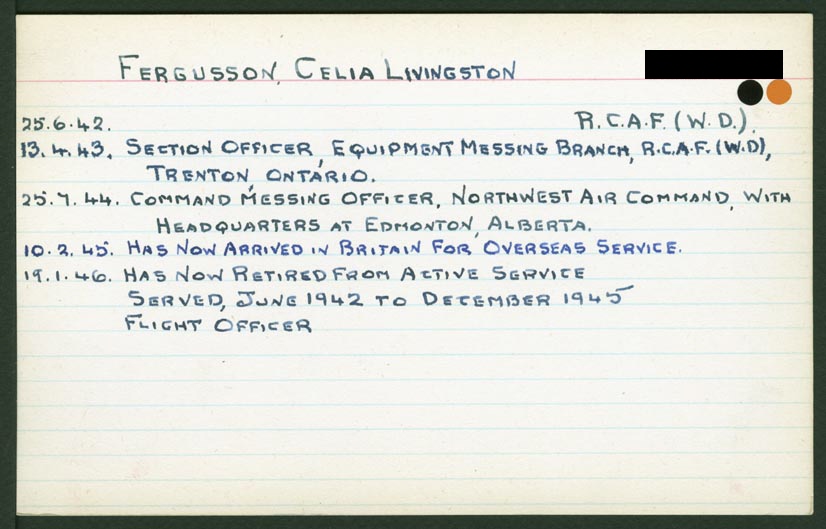 FERGUSSON, CELIA LIVINGSTON
25.6.42. R.C.A.F. (W.D.).
13.4.43. SECTION OFFICER, EQUIPMENT MESSING BRANCH, R.C.A.F. (W.D),
TRENTON, ONTARIO.
25.7.44. COMMAND MESSING OFFICER, NORTHWEST AIR COMMAND, WITH
HEADQUARTERS AT EDMONTON, ALBERTA.
10.2.45. HAS NOW ARRIVED IN BRITAIN FOR OVERSEAS SERVICE.
19.1.46. HAS NOW RETIRED FROM ACTIVE SERVICE
SERVED, JUNE 1942 TO DECEMBER 1945
FLIGHT OFFICER